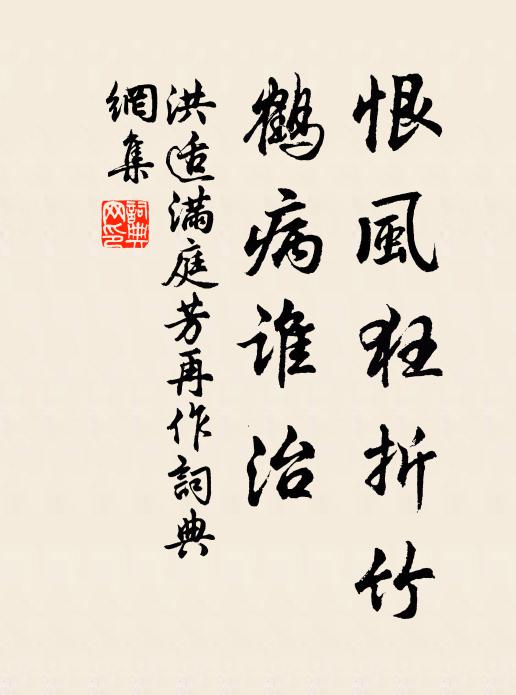 恨風狂折竹
鶴病誰治
洪适滿庭芳再作詞典
網集
詞典
网印